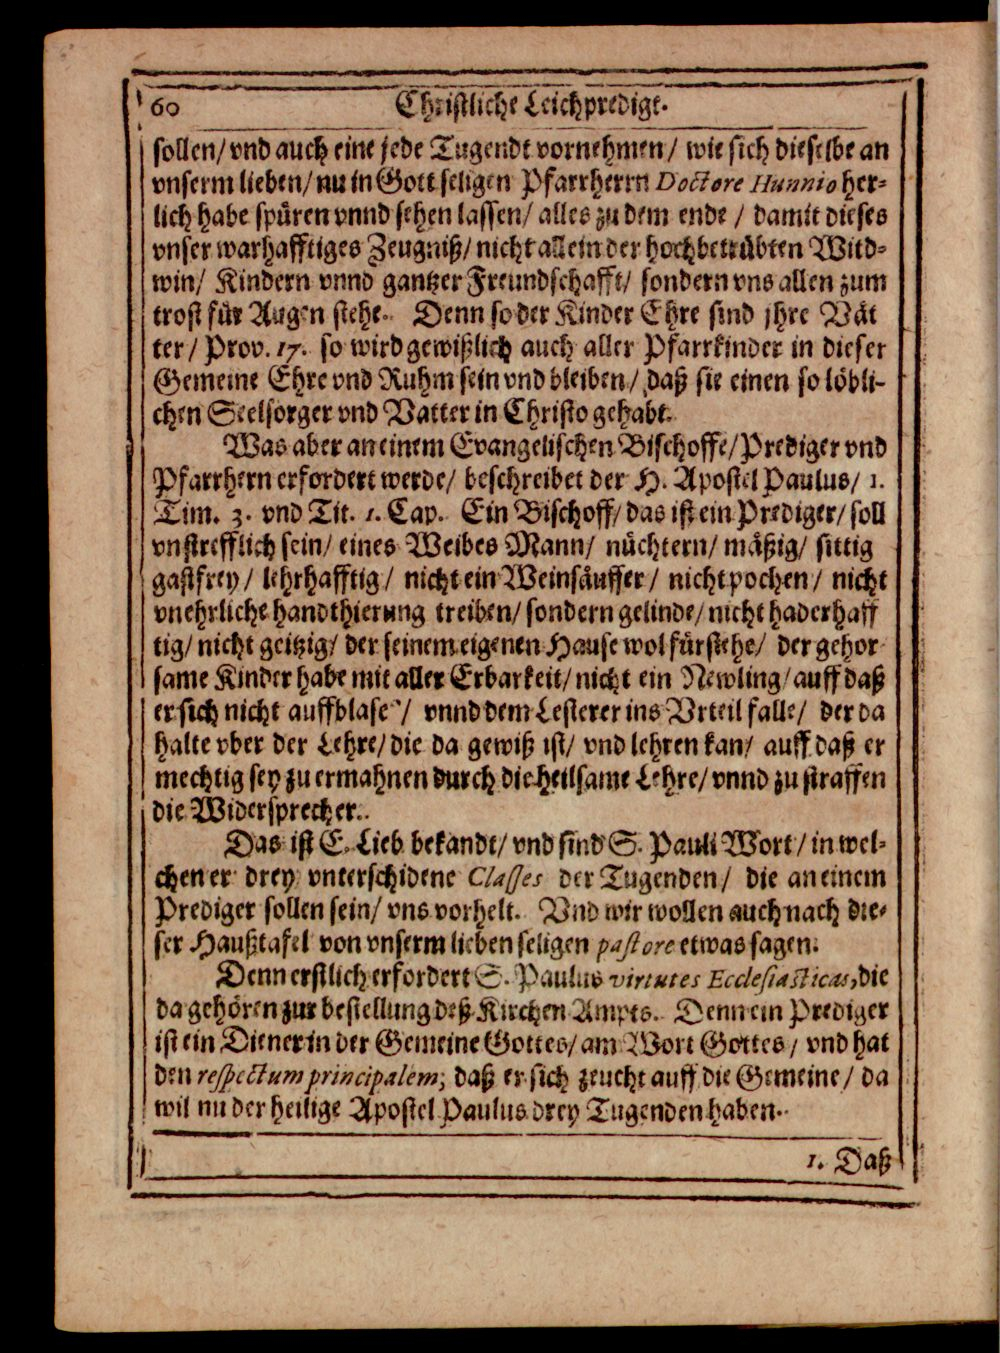 60 Christliche Leichpredigt.
sollen/ vnd auch eine jede Tugendt vornehmen/ wie sich dieselbe an
vnserm lieben/ nu in Gott seligen Pfarrherrn Doctore Hunnio her-
lich habe spüren vnnd sehen lassen/ alles zu dem ende / damit dieses
vnser warhafftiges Zeugniß/ nicht allein der hochbetrübten Witd-
win/ Kindern vnnd gantzer Freundschafft/ sondern vns allen zum
trost für Augen stehe. Denn so der Kinder Ehre sind jhre Vät
ter / Prov. 17. so wird gewißlich auch aller Pfarrkinder in dieser
Gemeine Ehre vnd Ruhm sein vnd bleiben/ daß sie einen so löbli-
chen Seelsorger vnd Vatter in Christo gehabt.
Was aber an einem Evangelischen Bischoffe/ Prediger vnd
Pfarrhern erfordert werde/ beschreibet der H. Apostel Paulus/ 1.
Tim. 3. vnd Tit. 1. Cap. Ein Bischoff/ das ist ein Prediger/ soll
vnstrefflich sein/ eines Weibes Mann/ nüchtern/ mäßig/ sittig
gastfrey/ lehrhafftig/ nicht ein Weinsäuffer/ nicht pochen/ nicht
vnehrliche handthierung treiben/ sondern gelinde/ nicht haderhaff
tig/ nicht geitzig/ der seinem eigenen Hause wol fürstehe/ der gehor
same Kinder habe mit aller Erbarkeit/ nicht ein Newling/ auff daß
er sich nicht auffblase/ vnnd dem Lesterer ins Vrteil falle/ der da
halte vber der Lehre/ die da gewiß ist/ vnd lehren kan/ auff daß er
mechtig sey zu ermahnen durch die heilsame Lehre/ vnnd zu straffen
die Widersprecher.
Das ist E. Lieb bekandt/ vnd sind S. Pauli Wort/ in wel-
chen er drey vnterschidene Classes der Tugenden/ die an einem
Prediger sollen sein/ vns vorhelt. Vnd wir wollen auch nach die-
ser Haußtafel von vnserm lieben seligen pastore etwas sagen.
Denn erstlich erfordert S. Paulus virtutes Ecclesiasticas, die
da gehören zur bestellung deß Kirchen Ampts. Denn ein Prediger
ist ein Diener in der Gemeine Gottes/ am Wort Gottes/ vnd hat
den respectum principalem, daß er sich zeucht auff die Gemeine/ da
wil nu der heilige Apostel Paulus drey Tugenden haben.
1. Daß